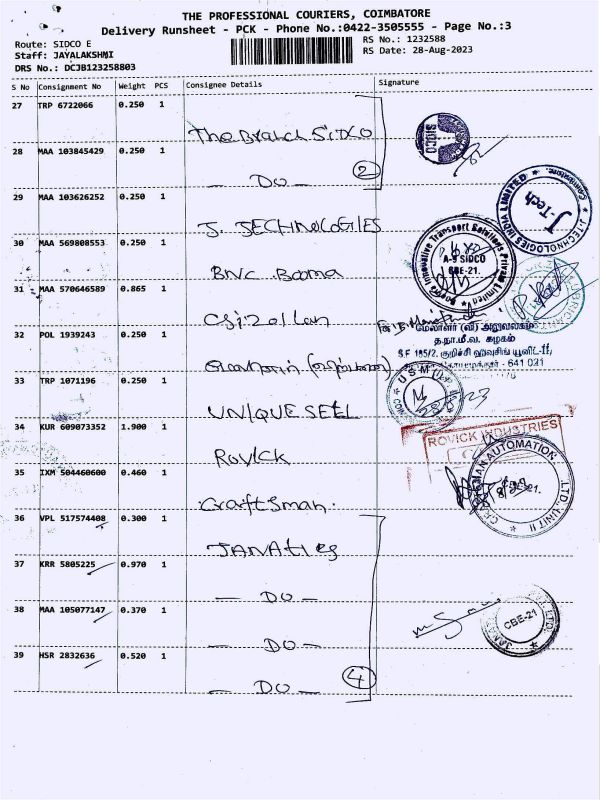 THE PROFESSIONAL COURIERS, COIMBATORE
Delivery Runsheet - PCK - Phone No.:0422-3505555 - Page No.:3
Route: SIDCO E
RS No.: 1232588
Staff: JAYALAKSHMI
RS Date: 28-Aug-2023
DRS No.: DCJB123258803
S No Consignment No Weight PCS Consignee Details Signature
27 TRP 6722066 0.250 1
The Branch SIDCO
SIDCO
28 MAA 103845429 0.250 1
— DO — 2
29 MAA 103626252 0.250 1
J. TECHNOLOGIES
J. TECHNOLOGIES INDIA LIMITED
J-Tech
Coimbatore
30 MAA 569808553 0.250 1
BNC
Innovative Transport Solutions Private Limited
A-9 SIDCO
CBE-21.
31 MAA 570646589 0.865 1
மேலாளர் (வி) அலுவலகம்
த.நா.மீ.வ. கழகம்
S.F 185/2, குறிச்சி ஹவுசிங் யூனிட்-II,
641 021
32 POL 1939243 0.250 1
33 TRP 1071196 0.250 1
UNIQUE SELL
USM
34 KUR 609073352 1.900 1
ROVICK
ROVICK INDUSTRIES
35 IXM 504460600 0.460 1
Craftsman
CRAFTSMAN AUTOMATION LTD UNIT II
36 VPL 517574408 0.300 1
JANATIES
37 KRR 5805225 0.970 1
— DO —
38 MAA 105077147 0.370 1
— DO —
CBE-21
39 HSR 2832636 0.520 1
— DO — 4